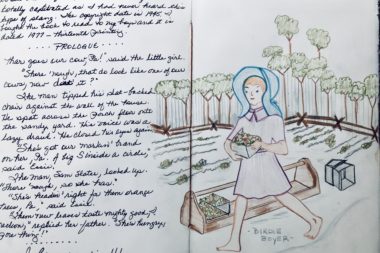 totally captivated as I had never heard this
type of slang. The copyright date is 1945. I
bought the book to read to my boys and it is
dated 1977 - thirteenth printing.
PROLOGUE
"Thar goes our cow, Pa!" said the little girl.
"Shore 'nough, that do look like one of our
cows, now don't it?"
The man tipped his slat-backed
chair against the wall of the house.
He spat across the porch floor onto
the sandy yard. His voice was a
lazy drawl. He closed his eyes again.
"She's got our markin' brand
on her, Pa. A big S inside a circle,"
said Essie.
The man, Sam Slater, looked up.
"Shore 'nough, so she has."
"She's headin' right for them orange
trees, Pa," said Essie.
"Them new leaves taste mighty good, I
reckon," replied her father. "She's hungry,
pore thing!"
BIRDIE
BOYER